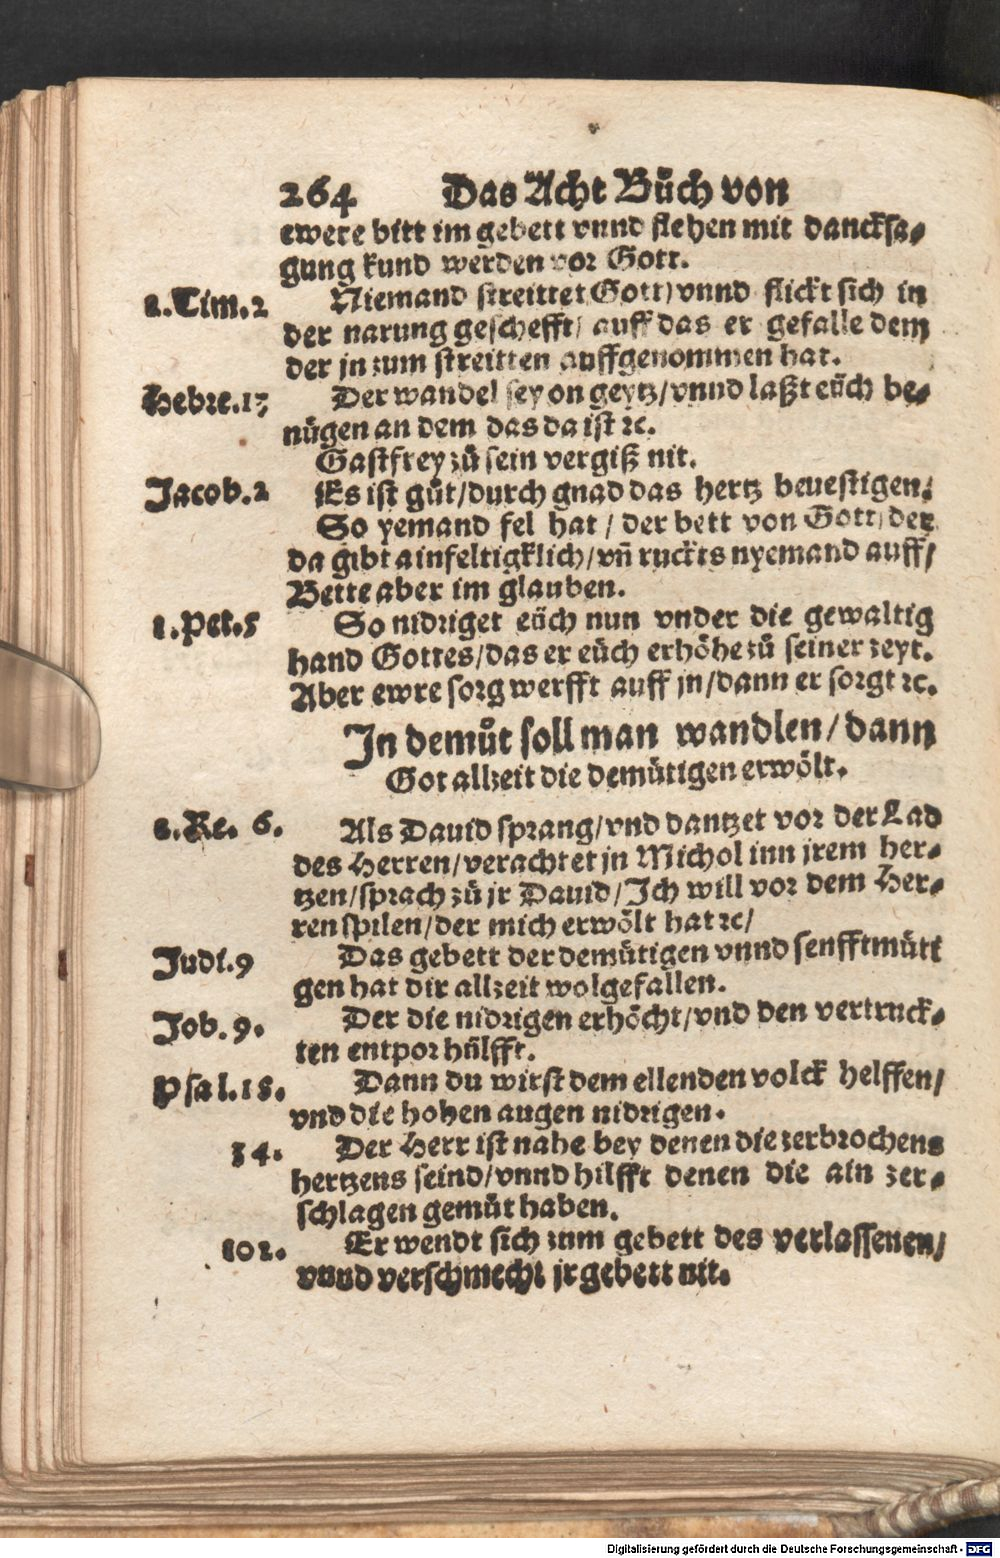 264 Das Acht Bůch von
ewere bitt im gebett vnnd flehen mit dancksa-
gung kund werden vor Gott.
2.Tim.2 Niemand streittet Gott/vnnd flickt sich in
der narung geschefft/ auff das er gefalle dem
der jn zum streitten auffgenommen hat.
Hebre.13 Der wandel sey on geytz/vnnd laßt eüch be-
nügen an dem das da ist ꝛc.
Gastfrey zů sein vergiß nit.
Jacob.2 Es ist gůt/durch gnad das hertz beuestigen.
So yemand fel hat / der bett von Gott/der
da gibt ainfeltigklich/vñ ruckts nyemand auff/
Bette aber im glauben.
1.Pet.5 So nidriget eüch nun vnder die gewaltig
hand Gottes/das er eüch erhöhe zů seiner zeyt.
Aber ewre sorg werfft auff jn/dann er sorgt ꝛc.
In demůt soll man wandlen/dann
Got allzeit die demütigen erwölt.
2.Re. 6. Als Dauid sprang/vnd dantzet vor der Lad
des Herren/verachtet jn Michol inn jrem her-
tzen/sprach zů jr Dauid/Ich will vor dem Her-
ren spilen/der mich erwölt hat ꝛc/
Judi.9 Das gebett der demütigen vnnd senfftmüti
gen hat dir allzeit wolgefallen.
Job.9. Der die nidrigen erhöcht/vnd den vertruck-
ten entpor hülfft.
Psal.18. Dann du wirst dem ellenden volck helffen/
vnd die hohen augen nidrigen.
34. Der Herr ist nahe bey denen die zerbrochens
hertzens seind/vnnd hilfft denen die ain zer-
schlagen gemüt haben.
101. Er wendt sich zum gebett des verlassenen/
vnnd verschmecht jr gebett nit.
Digitalisierung gefördert durch die Deutsche Forschungsgemeinschaft - DFG